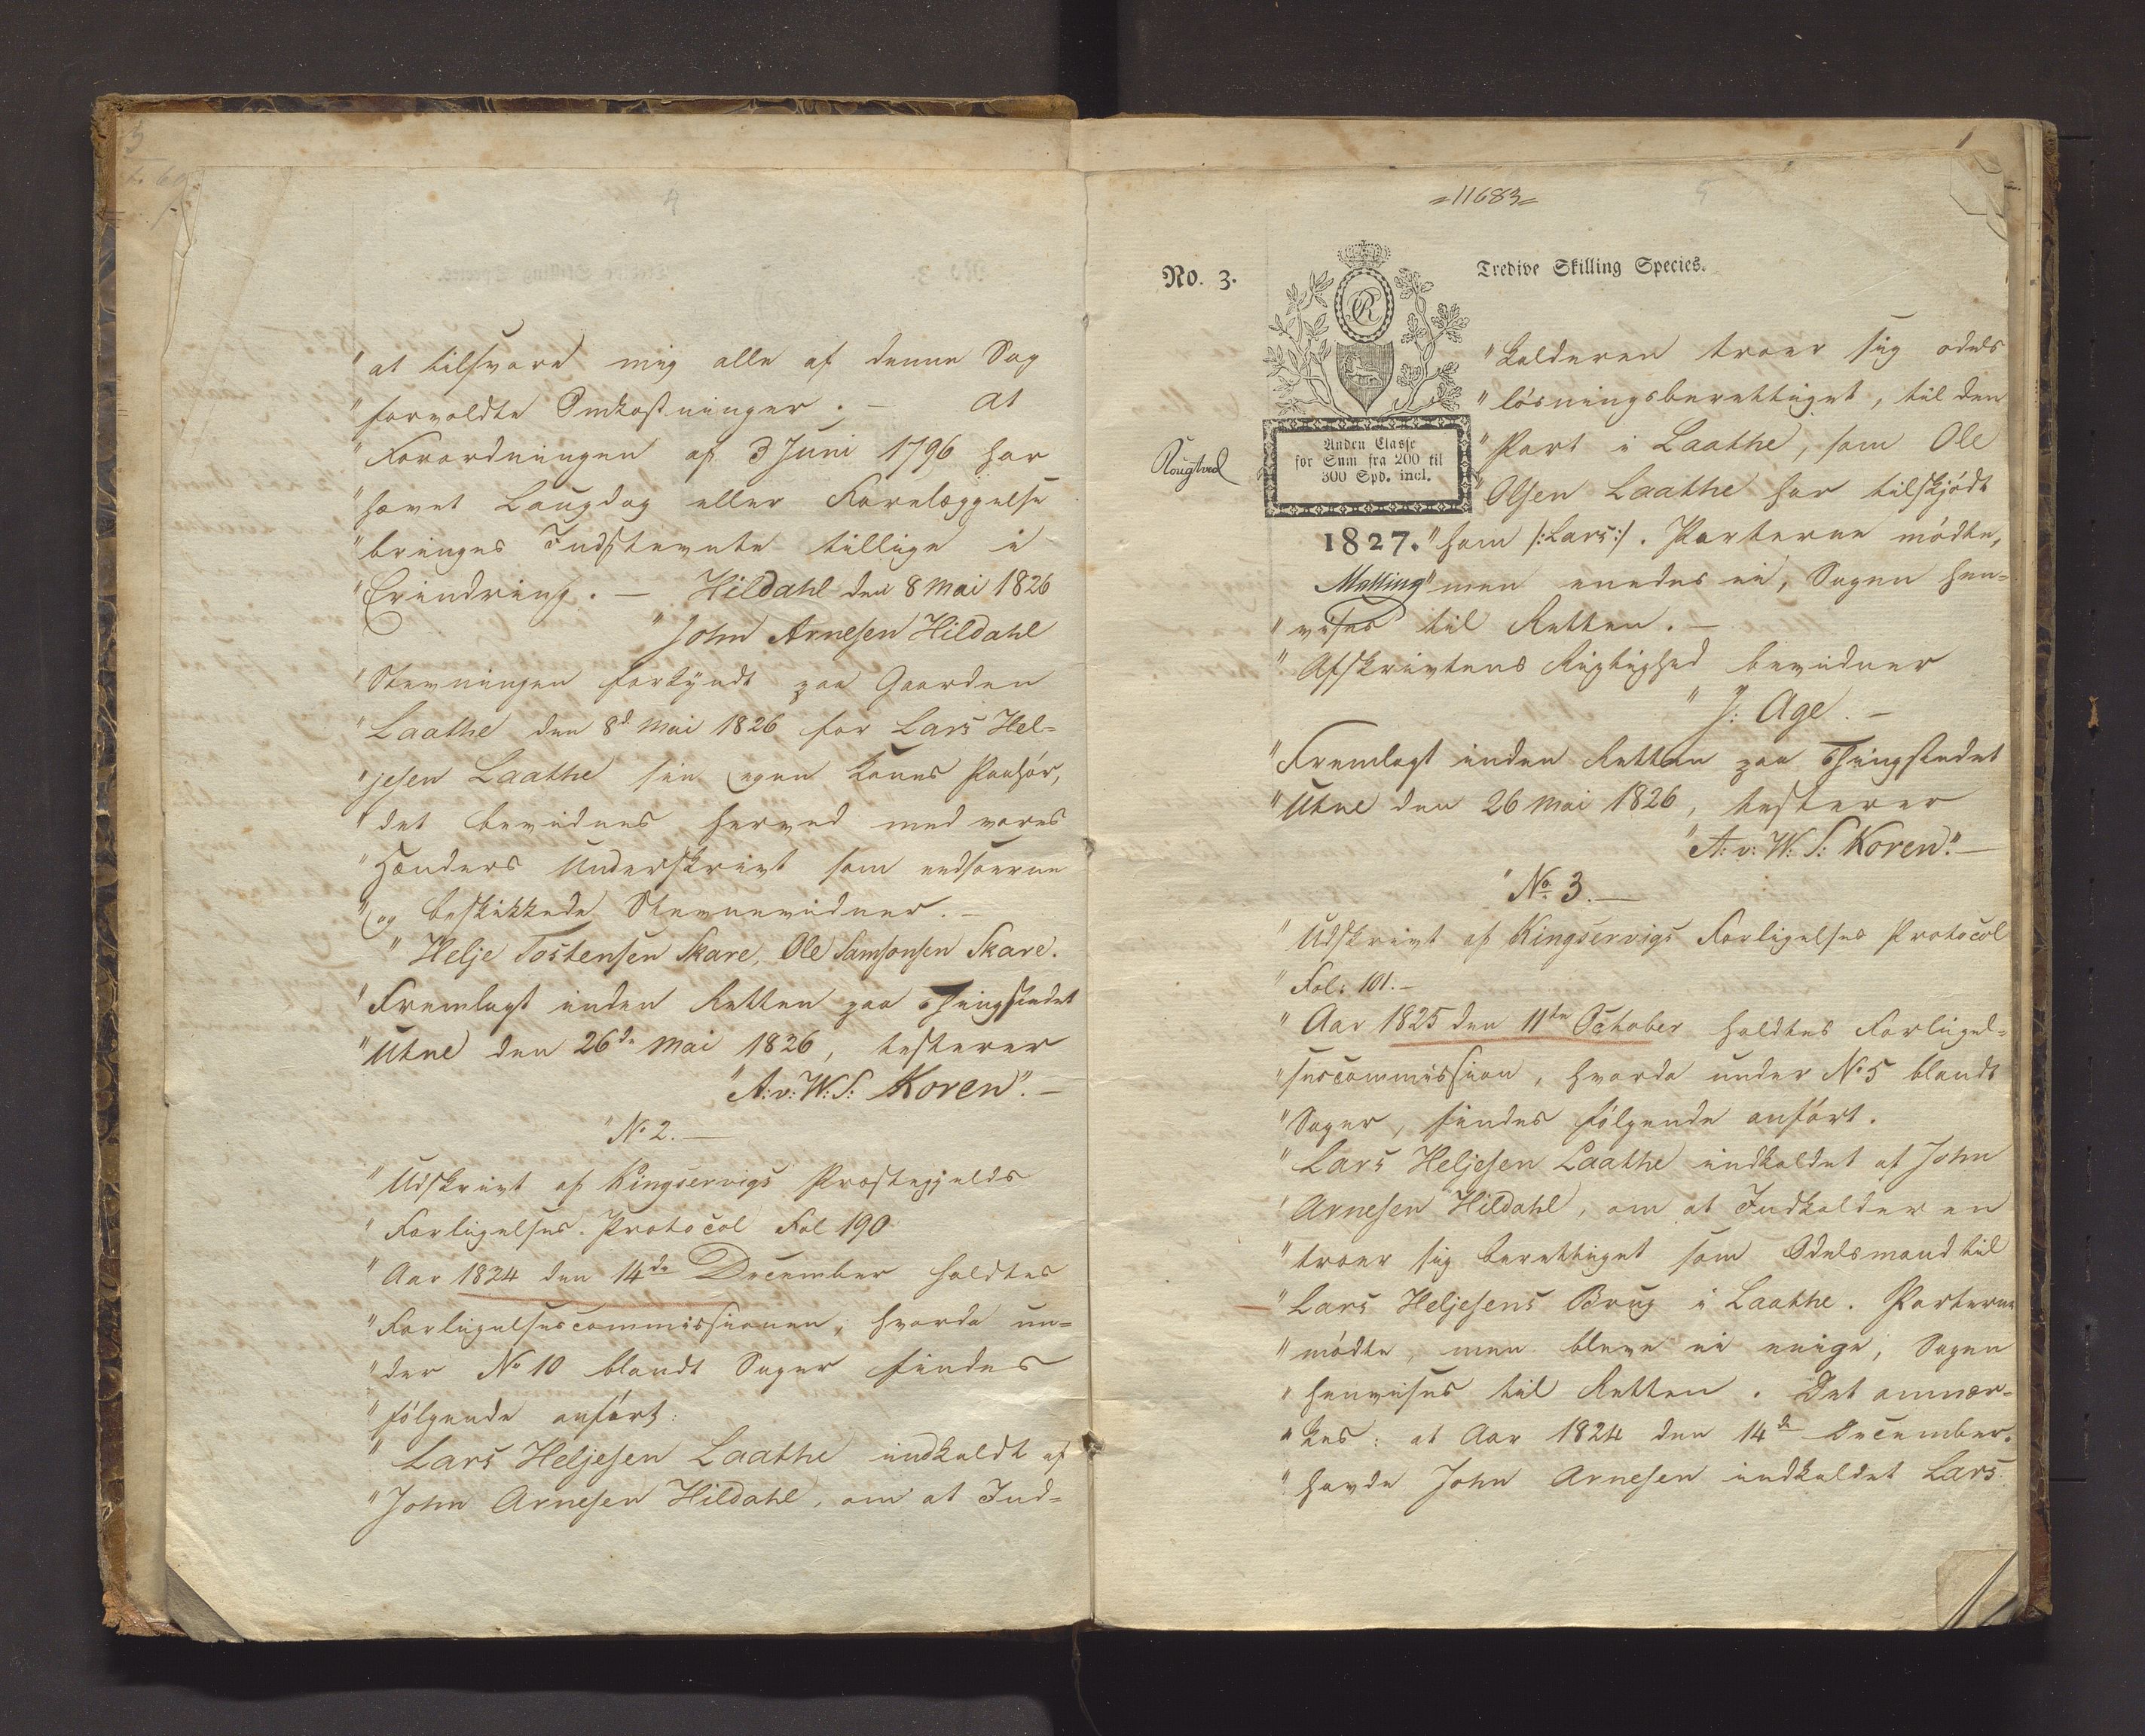 4
"at tilsvare mig alle af denne Sag
"forvoldte Omkostninger. — At
"Forordningen af 3 Juni 1796 har
"hævet Laugdag eller Forelæggelse
"bringes Indstevnte tillige i
"Erindring. — Hildahl den 8 Mai 1826
"John Arnesen Hildahl
"Stevningen forkyndt paa Gaarden
"Laathe den 8d Mai 1826 for Lars Hel-
"jesen Laathe sin egen Kones Paahør,
"det bevidnes herved med vores
"Hænders Underskrivt som eedsoerne
"og beskikkede Stevnevidner. —
"Helje Tostensen Skare, Ole Samsonsen Skare.
"Fremlagt inden Retten paa Thingstedet
"Utne den 26de Mai 1826, testerer
"A: v: W: S: Koren". —
"No 2. —
"Udskrivt af Kingservigs Præstegjelds
"Forligelses-Protocol Fol 190
"Aar 1824 den 14de December holdtes
"Forligelsescommissionen, hvorda un-
"der No 10 blandt Sager findes
"følgende anført:
"Lars Heljesen Laathe indkaldt af
"John Arnesen Hildahl, om at Ind-
=11683=
5
No. 3.
Tredive Skilling Species.
Anden Classe
for Sum fra 200 til
300 Spd. incl.
1827.
Rougtved
Malling
"kalderen troer sig odels
"løsningsberettiget, til den
"Part i Laathe, som Ole
"Olsen Laathe har tilskjødt
"ham /:Lars:/. Parterne mødte,
"men enedes ei, Sagen hen-
"vises til Retten. —
"Afskrivtens Rigtighed bevidner
"J: Age. —
"Fremlagt inden Retten paa Thingstedet
"Utne den 26 Mai 1826, testerer
"A: v: W: S: Koren". —
"No 3. —
"Udskrivt af Kingservigs Forligelses Protocol
"Fol: 101. —
"Aar 1825 den 11te October holdtes Forligel-
"sescommission, hvorda under No 5 blandt
"Sager, findes følgende anført.
"Lars Heljesen Laathe indkaldet af John
"Arnesen Hildahl, om at Indkalderen
"troer sig berettiget som Odelsmand til
"Lars Heljesens Brug i Laathe. Parterne
"mødte, men bleve ei enige, Sagen
"henvises til Retten. Det anmær-
"kes: at Aar 1824 den 14de December
"havde John Arnesen indkaldet Lars